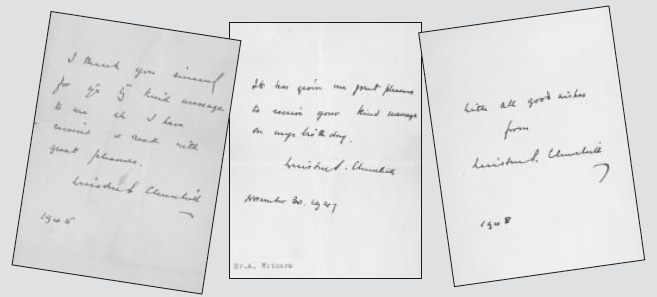 I thank you sincerely
for yr kind message
to me wh I have
received & read with
great pleasure.
Winston S. Churchill
1945
It has given me great pleasure
to receive your kind message
on my birthday.
Winston S. Churchill
November 30. 1947
Mr.A.
With all good wishes
from
Winston S. Churchill
1948